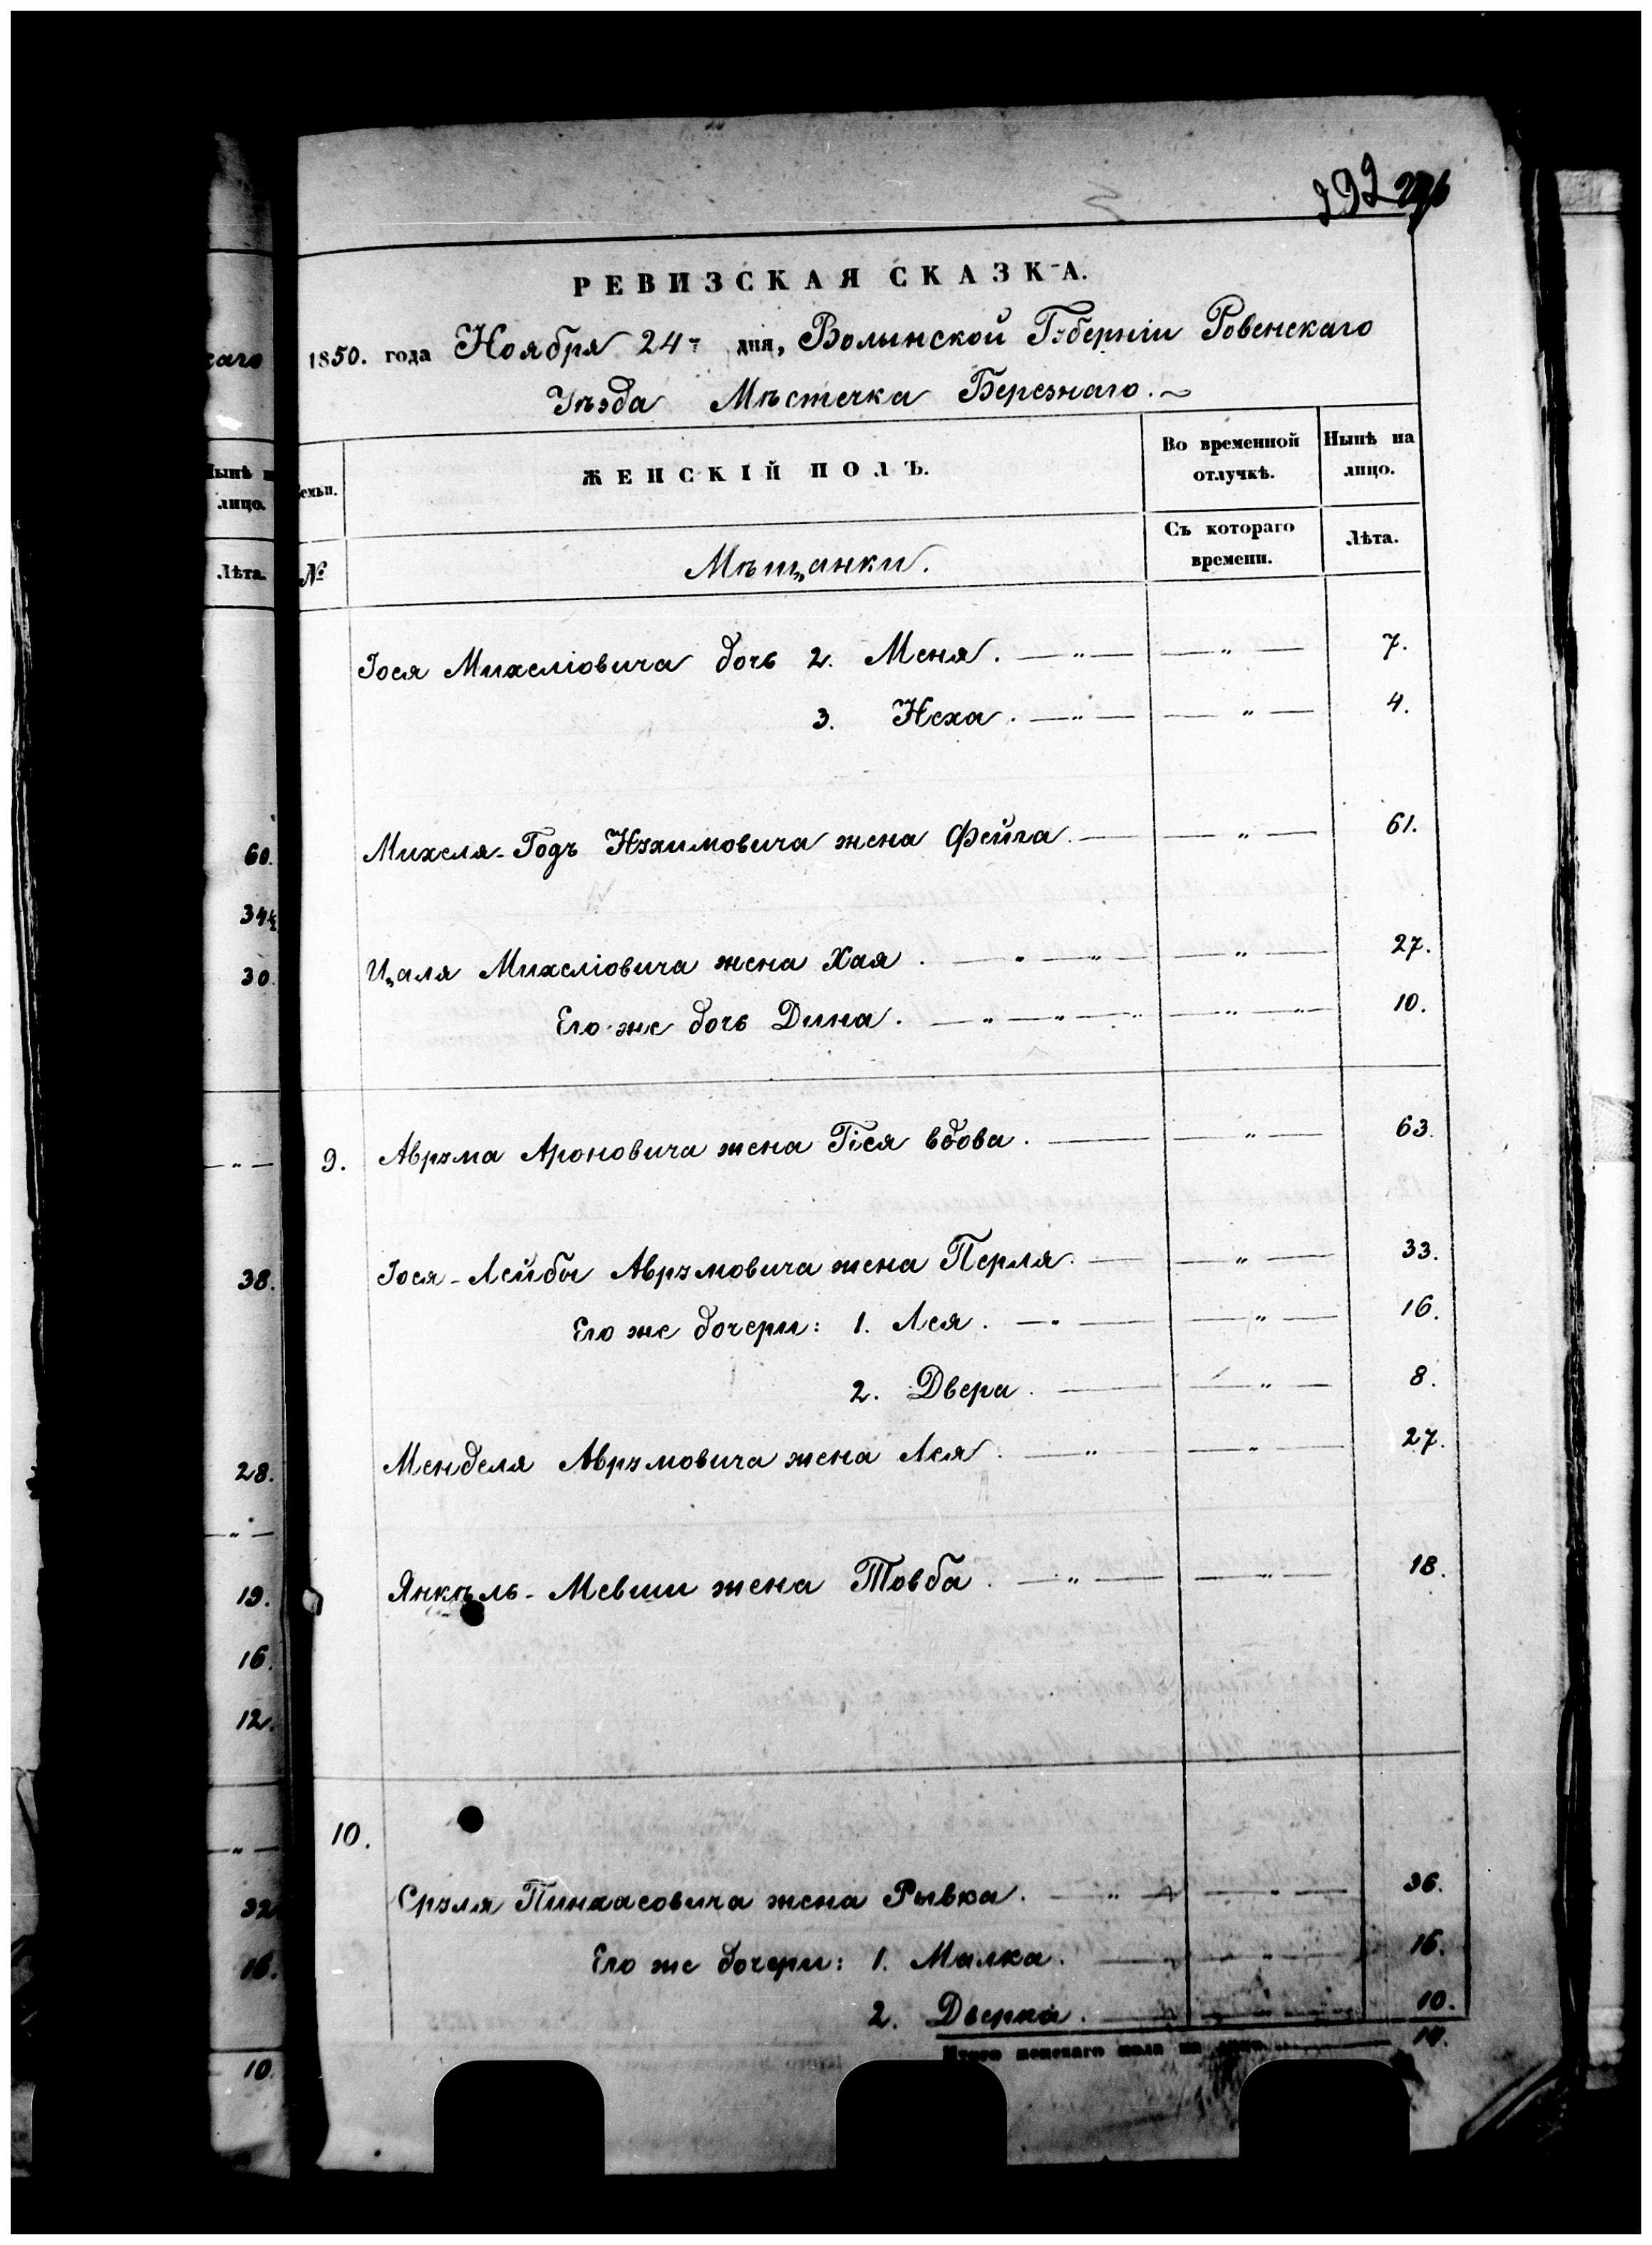 292 276
РЕВИЗСКАЯ СКАЗКА.
1850. года Ноября 24 дня, Волынской Губерніи Ровенскаго
Уѣзда Мѣстечка Березнаго.
каго
Нынѣ
лицо.
Лѣта.
семьи.
ЖЕНСКІЙ ПОЛЪ.
Во временной отлучкѣ.
Нынѣ на лицо.
№
Мѣщанки.
Съ котораго времени.
Лѣта.
Іося Михеліовича дочь 2. Меня. — „ — — „ — 7.
3. Неха. — „ — — „ — 4.
60. Михеля-Годъ Нухимовича жена Фейга. — — „ — 61.
34½
30. Цаля Михеліовича жена Хая. — „ — „ — — „ — 27.
Его же дочь Дина. — „ — „ — „ — „ — „ 10.
— „ — 9. Аврума Ароновича жена Гіся вдова. — — „ — 63.
38. Іося-Лейбы Аврумовича жена Перля. — — „ — 33.
Его же дочери: 1. Лея. — „ — — „ — 16.
2. Двера. — — „ — 8.
28. Менделя Аврумовича жена Лея. — „ — — „ — 27.
— „ —
19. Янкель-Мевши жена Товба. — „ — — „ — 18.
16.
12.
— „ — 10.
32 Сруля Пинхасовича жена Рывка. — „ — — „ — 36.
16. Его же дочери: 1. Малка. — — „ — 16.
2. Дверка. — — „ — 10.
10. Итого женскаго пола на лицо 14.